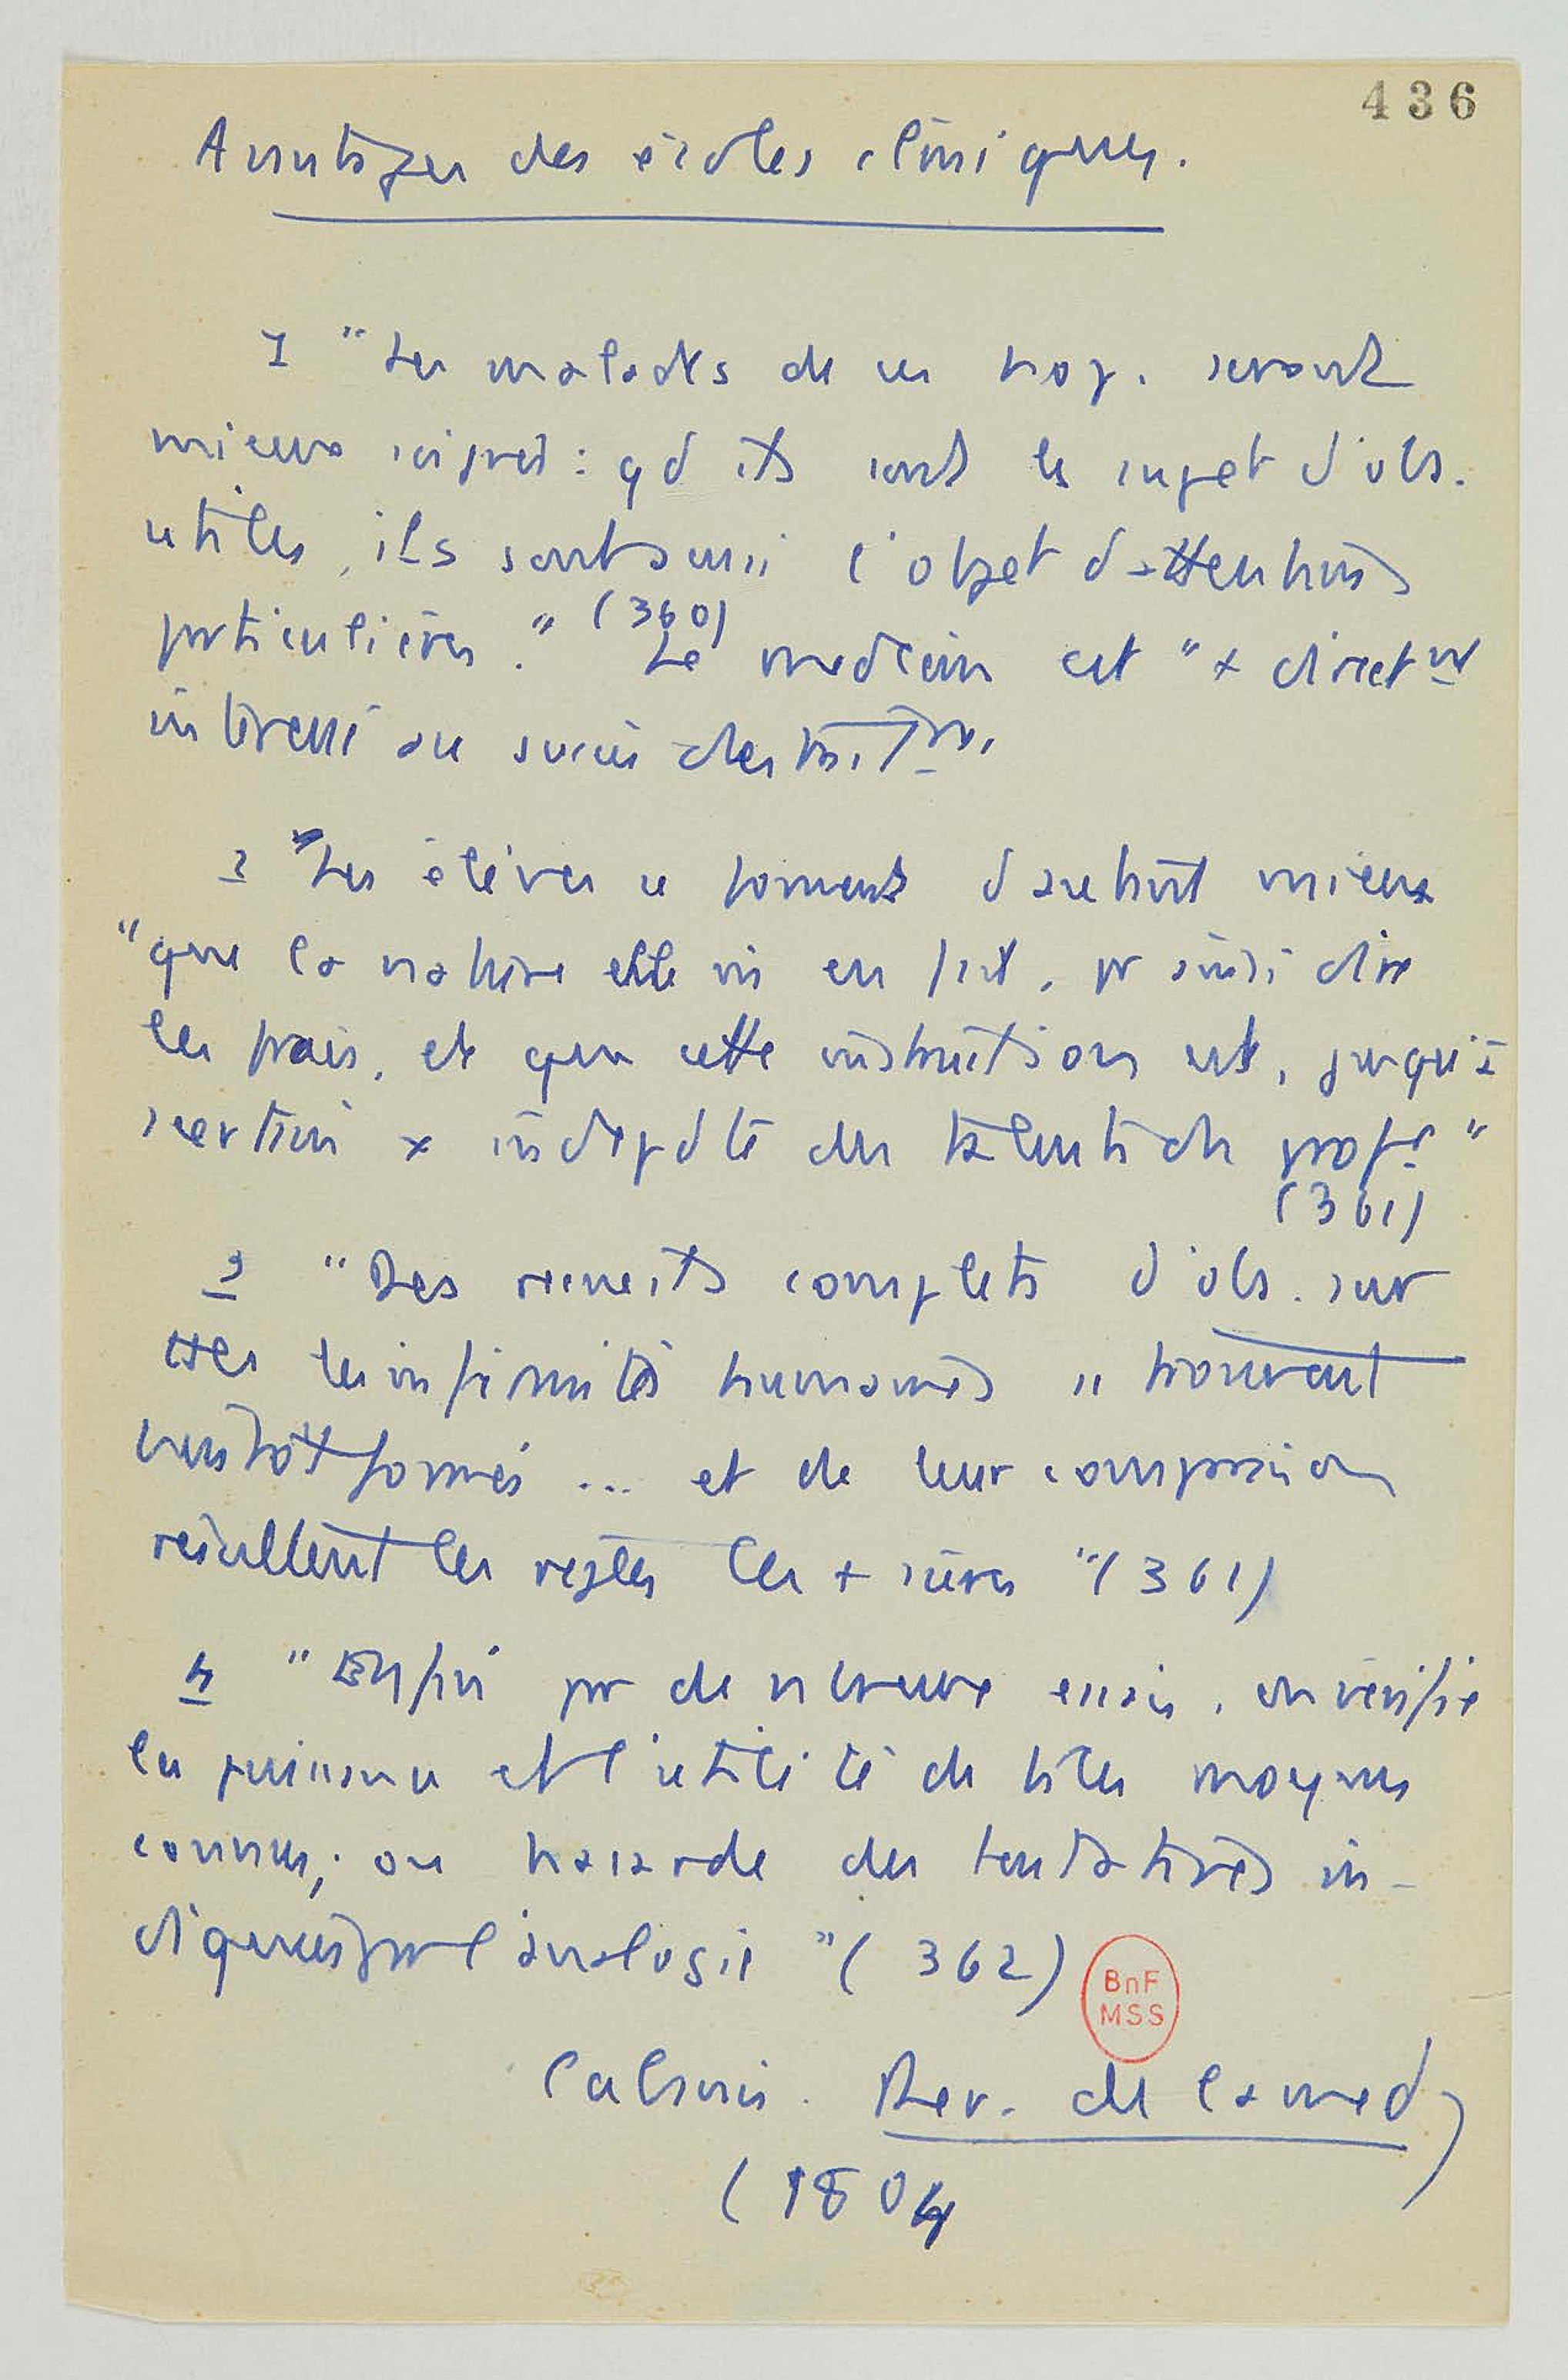 436
Avantages des écoles cliniques.
1 "Les malades de ces hop. seront
mieux soignés : qd ils sont le sujet d'obs.
utiles, ils sont aussi l'objet d'attentions
particulières." (360) Le medecin est "+ directmt
intéressé au succès des
2 Les élèves se forment d'autant mieux
"que la nature elle m en fait, pr ainsi dire
les frais, et que cette instruction est, jusqu'à
certain indepdte des talents du profr"
(361)
3 "Des recueils complets d'obs. sur
ttes les infirmités humaines" se trouvent
bientôt formés ... et de leur comparaison
résultent les regles les + sûres "(361)
4 "Enfin pr de nbreux essais, on vérifie
la puissance et l'utilité de tels moyens
connus; on hasarde des tentatives in-
diquées par l'analogie "(362)
BnF
MSS
Cabanis. Rev. de la med
(1804)